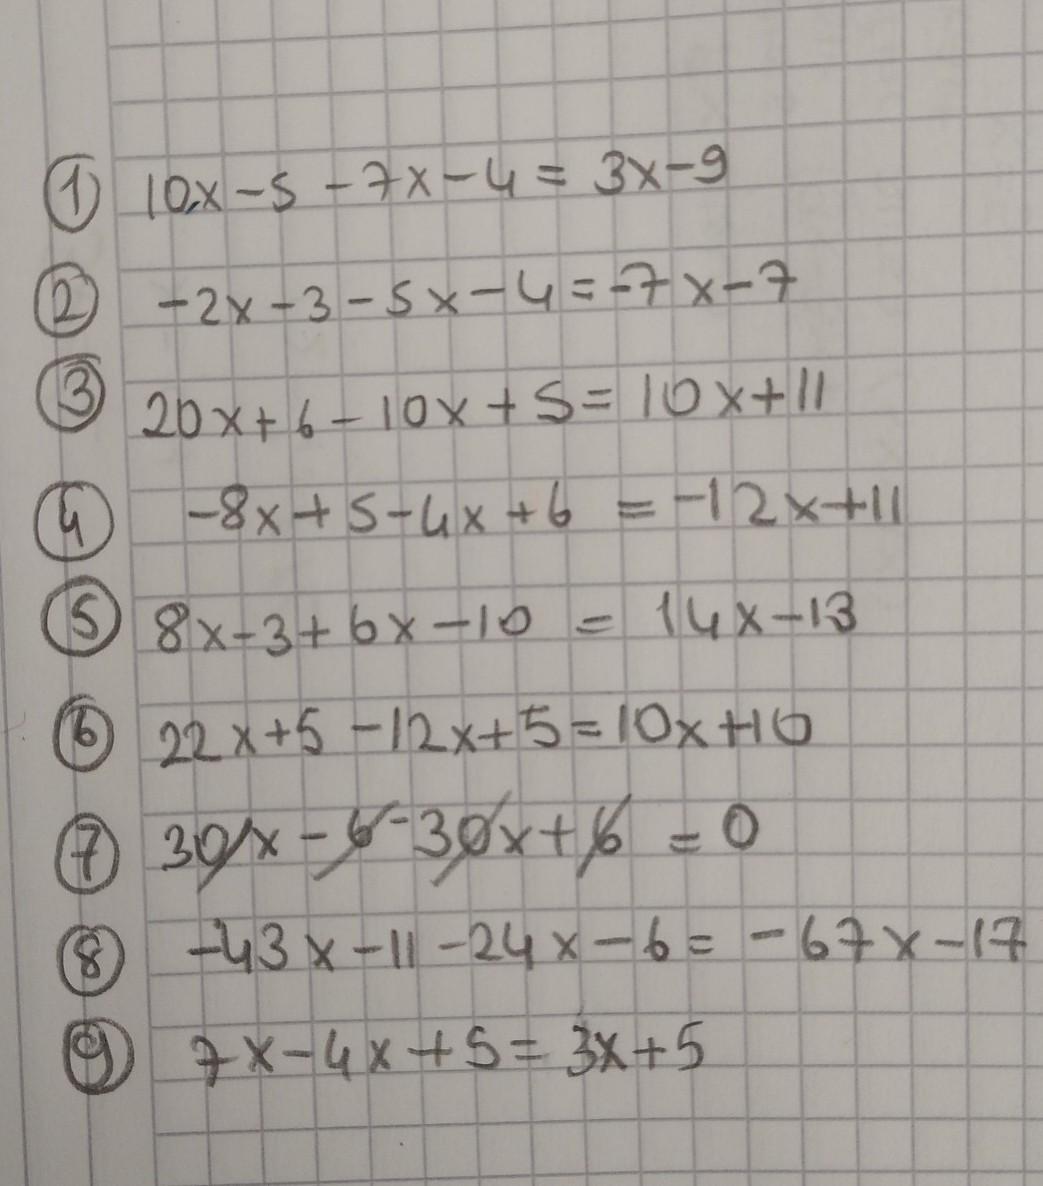 ① 10x-5-7x-4=3x-9
② -2x-3-5x-4=-7x-7
③ 20x+6-10x+5=10x+11
④ -8x+5-4x+6=-12x+11
⑤ 8x-3+6x-10=14x-13
⑥ 22x+5-12x+5=10x+10
⑦ 30x-6-30x+6=0
⑧ -43x-11-24x-6=-67x-17
⑨ 7x-4x+5=3x+5